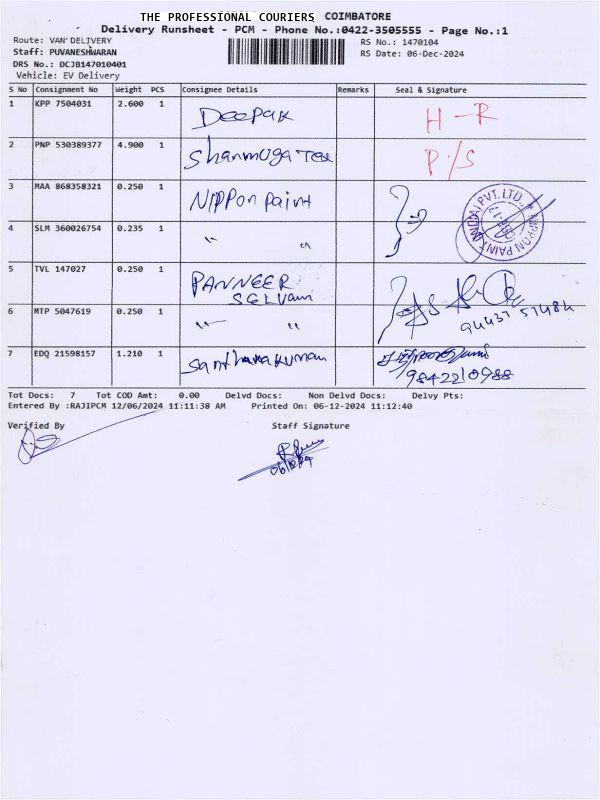 THE PROFESSIONAL COURIERS COIMBATORE
Delivery Runsheet - PCM - Phone No.:0422-3505555 - Page No.:1
Route: VAN DELIVERY RS No.: 1470104
Staff: PUVANESHWARAN RS Date: 06-Dec-2024
DRS No.: DCJB147010401
Vehicle: EV Delivery
S No Consignment No Weight PCS Consignee Details Remarks Seal & Signature
1 KPP 7504031 2.600 1 Deepak H-R
2 PNP 530389377 4.900 1 Shanmuga Tex P/S
3 MAA 868358321 0.250 1 Nippon Paint
4 SLM 360026754 0.235 1 " "
5 TVL 147027 0.250 1 PANNEER
SELVam
6 MTP 5047619 0.250 1 " " 94437 51484
7 EDQ 21598157 1.210 1 Santhanakumar
9842210988
Tot Docs: 7 Tot COD Amt: 0.00 Delvd Docs: Non Delvd Docs: Delvy Pts:
Entered By :RAJIPCM 12/06/2024 11:11:38 AM Printed On: 06-12-2024 11:12:40
Verified By Staff Signature